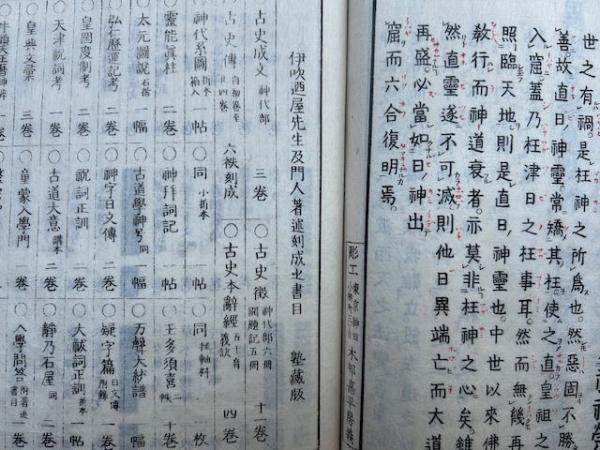 世之有禍是枉神之所爲也然惡固不勝
善故直日神靈常矯其枉使之直皇祖之
入窟蓋乃枉津日之枉事耳然而無幾再
照臨天地則是直日神靈也中世以來佛
敎行而神道衰者亦莫非枉神之心矣雖
然直靈遂不可滅則他日異端亡而大道
再盛必當如日神出
窟而六合復明焉
彫工 東京神田 木邨嘉平房義
伊吹廼屋先生及門人著述刻成之書目 塾藏版
古史成文 神代部 三卷 〇古史徵 神代部六冊 開題記五冊 十一卷
古史傳 六帙刻成 〇古史本辭經 五十音義訣 四卷
神代系圖 折本箱入 一帖 〇同 小折本 一帖 〇同 掛軸料 一枚
靈能眞柱 二卷 〇神拜詞記 一帖 〇玉多須喜 二帙 十卷
太元圖說 石摺 一幅 〇古道學神号 同 一幅 〇万聲大統譜 一幅
弘仁曆運記考 二卷 〇神字日文傳 二卷 〇疑字篇 日文傳附錄 一卷
皇國度制考 二卷 〇祝詞正訓 二卷 〇大祓詞正訓 一
天津祝詞考 一卷 〇古道大意 講本 二卷 〇靜乃石屋 同 二卷
皇典文彙 三卷 〇童蒙入學門 一卷 〇入學問答